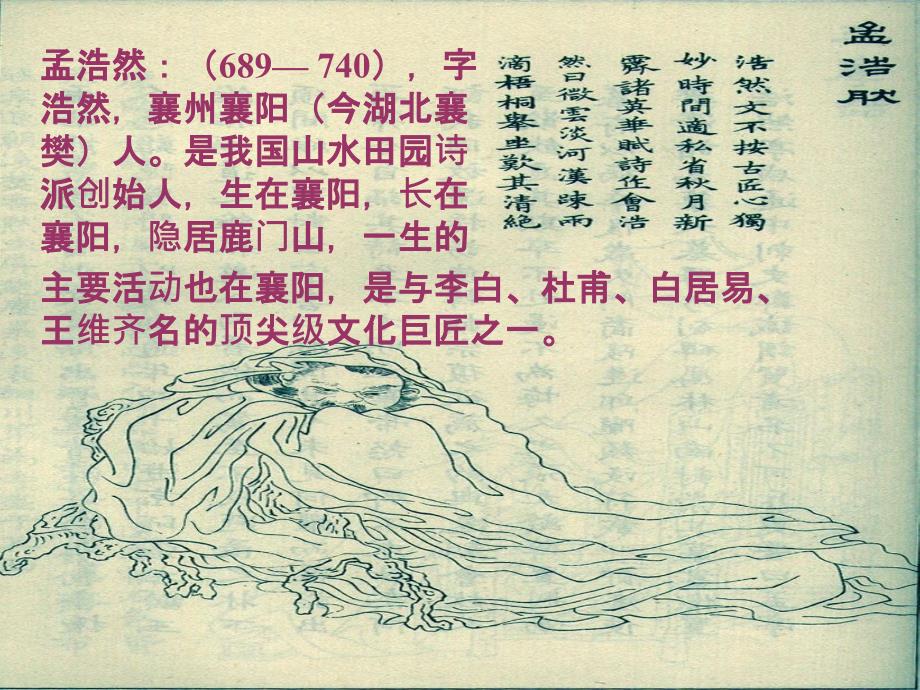 孟浩然：（689— 740），字
浩然，襄州襄阳（今湖北襄
樊）人。是我国山水田园诗
派创始人，生在襄阳，长在
襄阳，隐居鹿门山，一生的
主要活动也在襄阳，是与李白、杜甫、白居易、
王维齐名的顶尖级文化巨匠之一。
孟浩肰
浩然文不按古匠心獨
妙時閒適私省秋月新
霽諸英華賦詩作會浩
然曰微雲淡河漢踈雨
滴梧桐舉坐歎其清絕